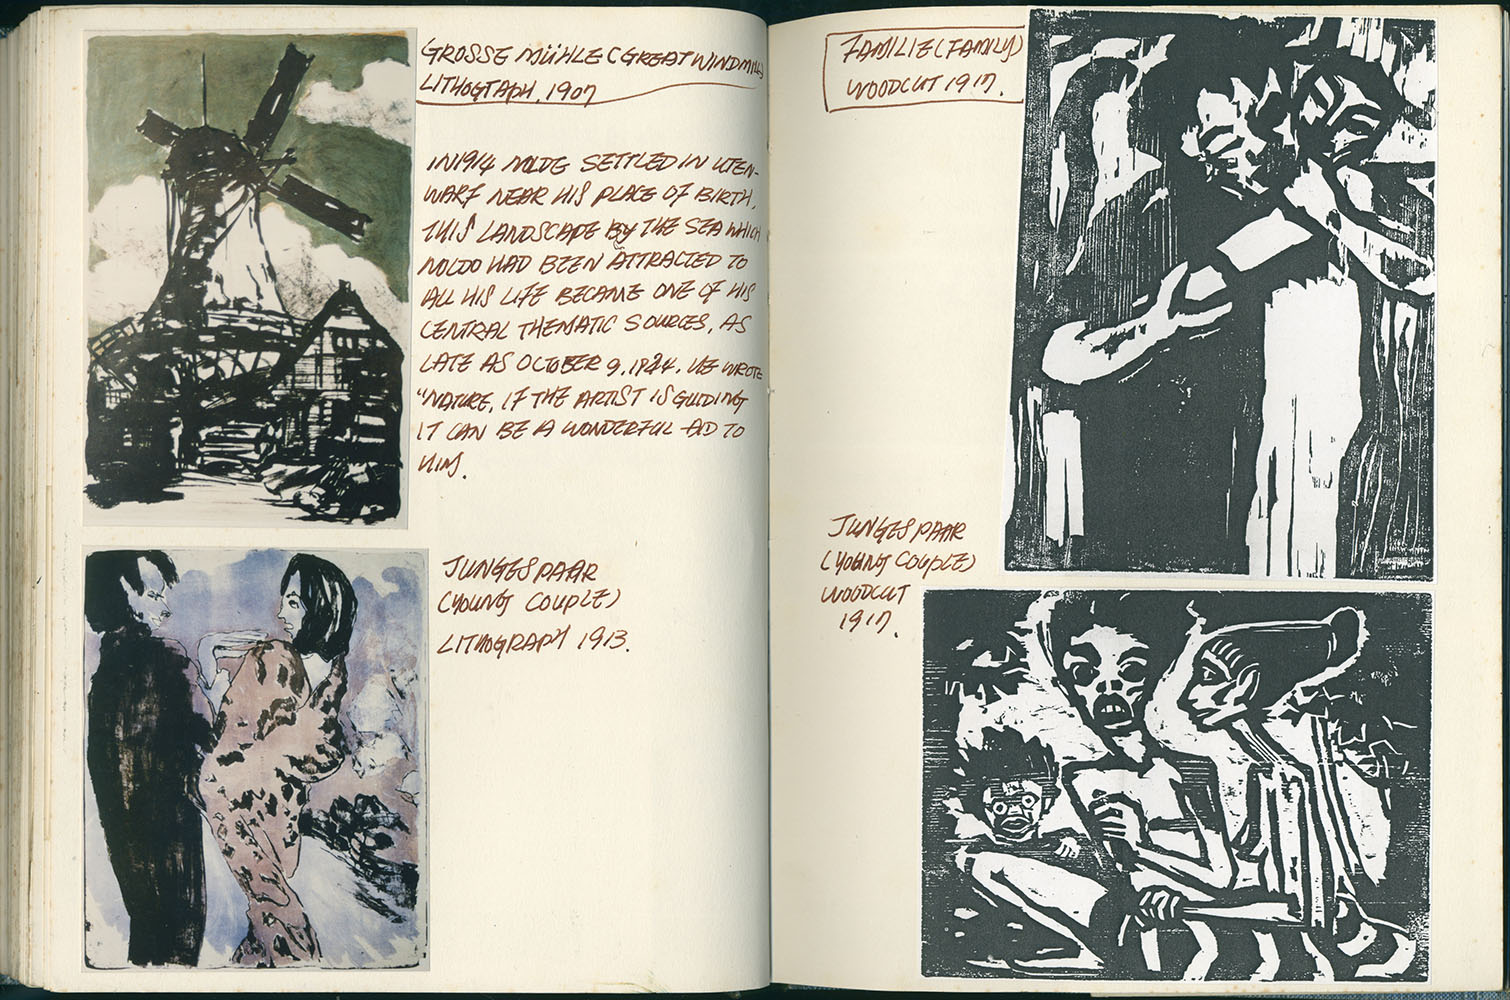 GROSSE MÜHLE (GREAT WINDMILL)
LITHOGTAPH. 1907
IN 1914 NOLDE SETTLED IN UTEN-
WARF NEAR HIS PLACE OF BIRTH.
THIS LANDSCAPE BY THE SEA WHICH
NOLDO HAD BEEN ATTRACTED TO
ALL HIS LIFE BECAME ONE OF HIS
CENTRAL THEMATIC SOURCES. AS
LATE AS OCTOBER 9. 1924. HE WROTE
"NATURE, IF THE ARTIST IS GUIDING
IT CAN BE A WONDERFUL AID TO
HIM.
JUNGES PAAR
(YOUNG COUPLE)
LITHOGRAPH 1913.
FAMILIE (FAMILY)
WOODCUT 1917.
JUNGES PAAR
(YOUNG COUPLE)
WOODCUT
1917.